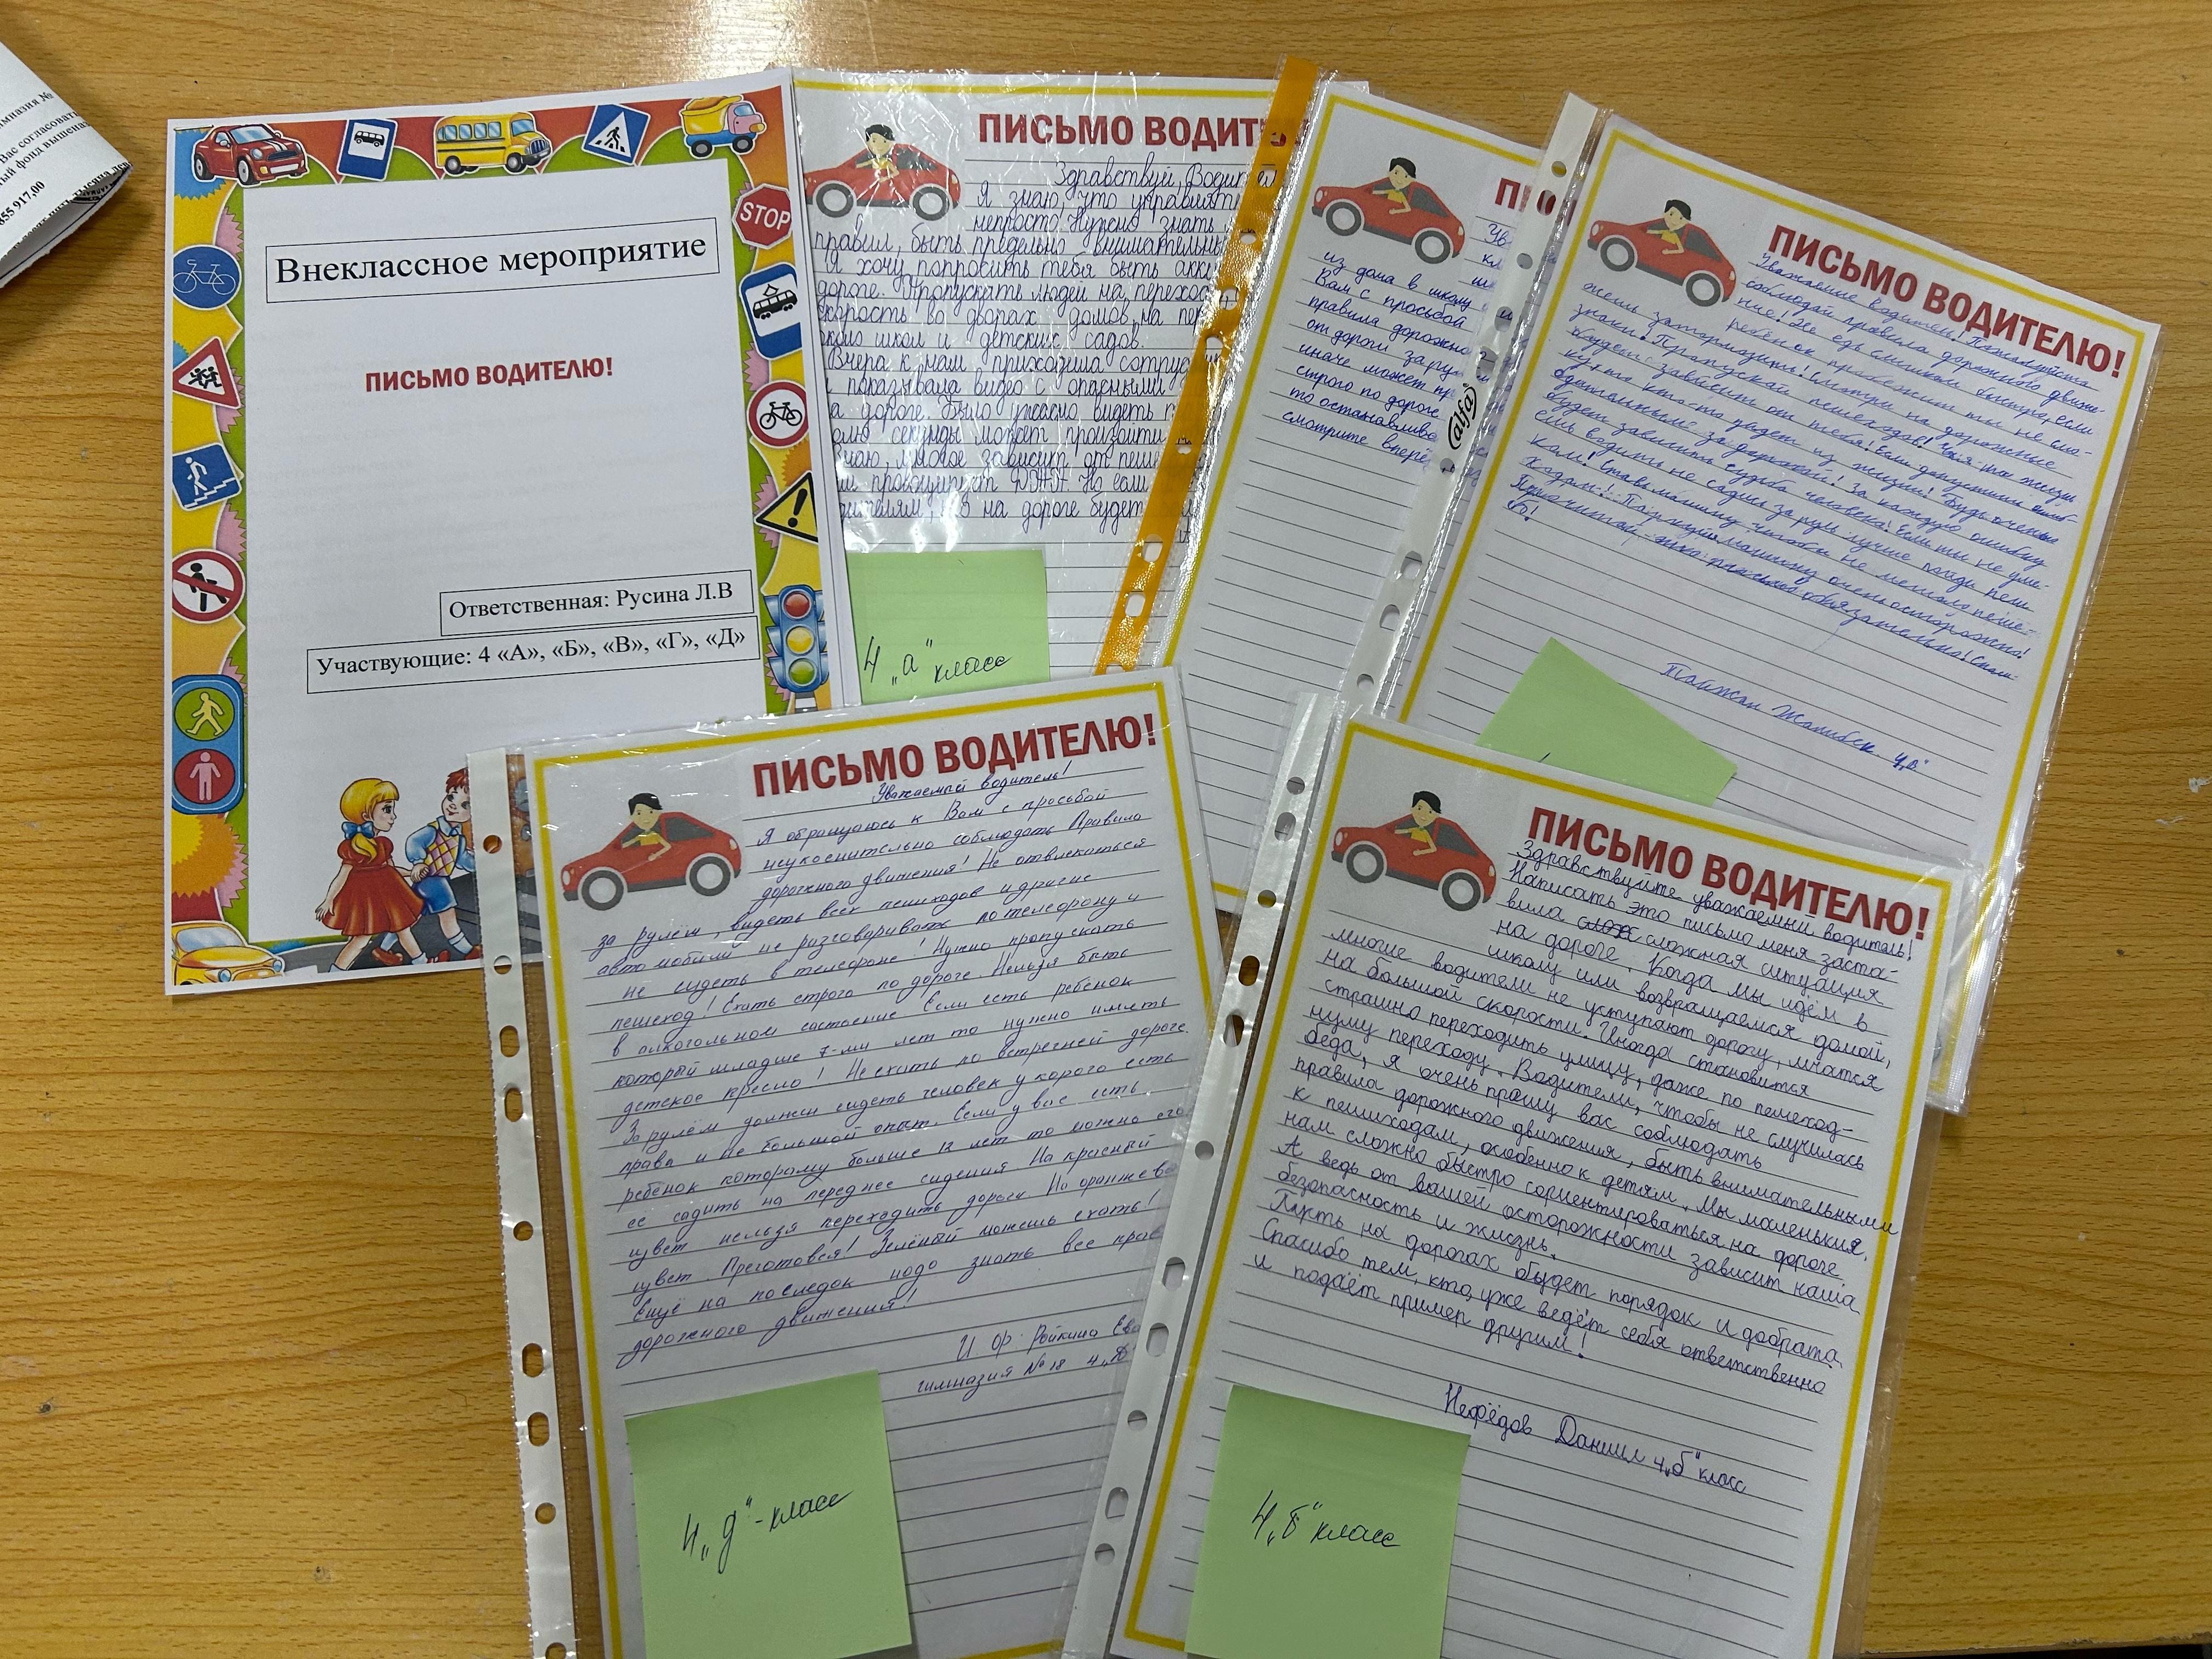 мназия №
Вас согласовать
ный фонд вышена
855 917,00
Внеклассное мероприятие
ПИСЬМО ВОДИТЕЛЮ!
Ответственная: Русина Л.В
Участвующие: 4 «А», «Б», «В», «Г», «Д»
STOP
ПИСЬМО ВОДИТ
Здравствуй, Водител
Я знаю, что управлять
непросто. Нужно знать
правил, быть предельно внимательны
Я хочу попросить тебя быть акк
дороге. Пропускать людей на перехо
скорость во дворах домов, на пер
около школ и детских садов.
Вчера к нам приходила сотруд
и показывала видео с опасными
а дороге. Было ужасно видеть
секунды может произойти
Знаю, многое зависит от пеше
провоцирует ДТП. Но если
дителям, на дороге будет
4 „а" класс
Ув
кл
из дома в школу
Вам с просьбой
правила дорожно
от дороги за ру
иначе может пр
строго по дороге
то останавлива
смотрите вперё
alfa
ПИСЬМО ВОДИТЕЛЮ!
Уважаемые водители! Пожалуйста
соблюдай правила дорожного движе-
ние! Не едь слишком быстро, если
ребёнок пробежит ты не смо-
жешь затормозить! Смотри на дорожные
знаки! Пропускай пешеходов! Чья-то жизнь
зависит от тебя! Если допустишь ошиб-
ку, то кто-то уйдет из жизни! Будь очень
за дорогой! За каждую ошибку
будет зависить судьба человека! Если ты не уме-
ешь водить не садись за руль лучше пойди пеш
ком! Ставь машину чтобы не мешала пеше-
ходам! Паркуй машину очень осторожно!
Прочитай это письмо обязательно! Спаси-
бо!
Жанибек 4„в"
ПИСЬМО ВОДИТЕЛЮ!
Уважаемый водитель!
Я обращаюсь к Вам с просьбой
неукоснительно соблюдать Правила
дорожного движения! Не отвлекаться
за рулём, видеть всех пешеходов и другие
автомобили не разговаривать по телефону и
не сидеть в телефоне! Нужно пропускать
пешеход! Ехать строго по дороге Нельзя быть
в алкогольном состоение Если есть ребёнок
который младше 7-ми лет то нужно иметь
детское кресло! Не ехать по встречней дороге
За рулём должен сидеть человек у корого есть
права и не большой опыт. Если у вас есть
ребёнок которому больше 12 лет то можно его
ее садить на переднее сидения На красный
цвет нельзя переходить дорогу На оранжево
цвет. Преготовся! Зелёный можешь ехать!
Ещё на последок надо знать все прав
дорожного движения!
гимназия №18 4„Д
4„д"-класс
ПИСЬМО ВОДИТЕЛЮ!
Здравствуйте уважаемый водитель!
Написать это письмо меня заста-
вила сложная ситуация
на дороге. Когда мы идём в
школу или возвращаемся домой,
многие водители не уступают дорогу, мчатся
на большой скорости. Иногда становится
страшно переходить улицу, даже по пешеход-
ному переходу. Водители, чтобы не случилась
беда, я очень прашу вас соблюдать
правила дорожного движения, быть внимательными
к пешиходам, особенно к детям. Мы маленькия,
нам сложно быстро сориентироваться на дороге.
А ведь от вашей осторожности зависит наша
безопасность и жизнь.
Пусть на дорогах будет порядок и добрата.
Спасибо тем, кто уже ведёт себя ответственно
и подаёт пример другим!
Нефёдов Даниил 4„б" класс
4„б" класс